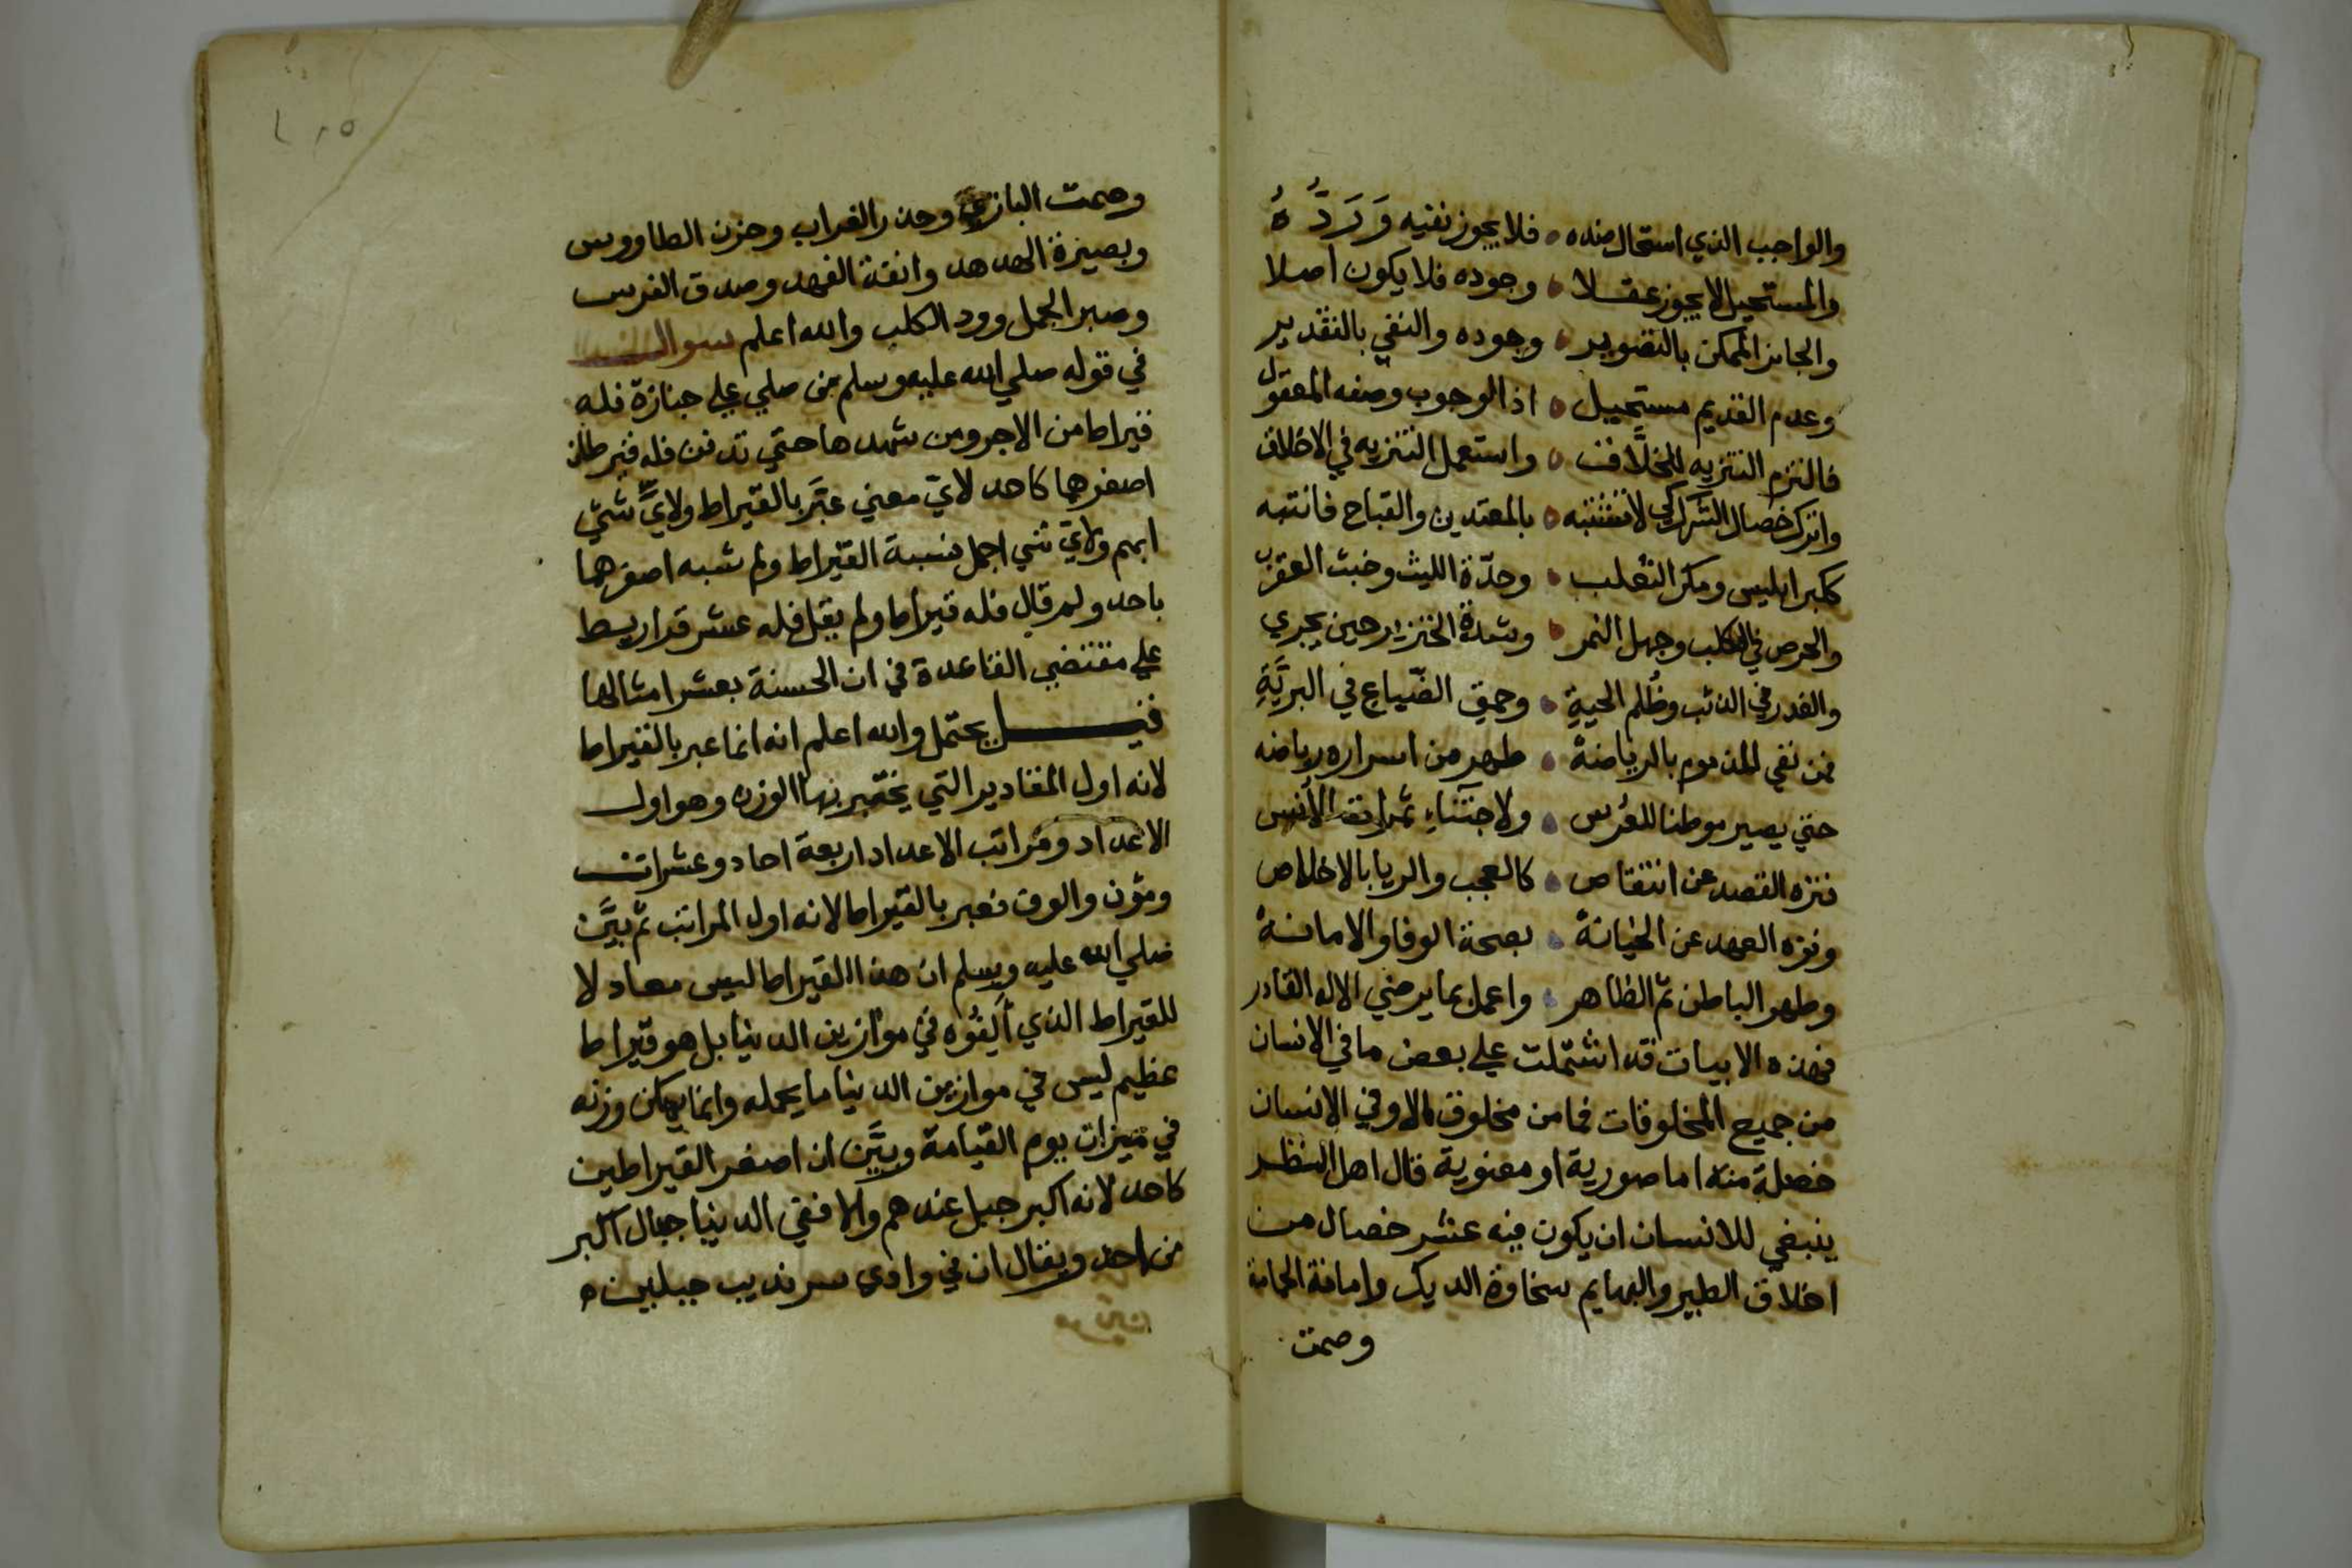 والواجب الذي استحال ضده فلا يجوز نفيه وَرَدُّهُ
والمستحيل لا يجوز عقلا وجوده فلا يكون اصلا
والجايز الممكن بالتصوير وجوده والنفي بالتقدير
وعدم القديم مستحيل اذ الوجوب وصفه المعقول
فالتزم التنزيه للخلَّاق واستعمل التنزيه في الاخلاق
واترك خصال الشرك لا تشتبه بالمعتدين والقباح فانتبه
ككبر ابليس ومكر الثعلب وحدّة الليث وخبث العقرب
والحرص في الكلب وجهل النمر وشدة الخنزير حين يجري
والغدر في الذئب وظُلم الحيةِ وحمق الضّباع في البريَّةِ
فمن نفى المذموم بالرياضة طهر من اسراره رياضه
حتي يصير موطنا للغرس ولاجتناء ثمرات الأنس
فنزه القصد عن انتقاص كالعجب والريا بالاخلاص
ونزه العهد عن الخيانة بصحة الوفا والامانة
وطهر الباطن ثم الظاهر واعمل بما يرضي الاله القادر
فهذه الابيات قد اشتملت علي بعض ما في الانسان
من جميع المخلوقات فما من مخلوق الا وفي الانسان
خصلة منه اما صورية او معنوية قال اهل النظر
ينبغي للانسان ان يكون فيه عشر خصال من
اخلاق الطير والبهايم سخاوة الديك وامانة الحمامة
وصمت
وصمت البازي وحذر الغراب وحزن الطاووس
وبصيرة الهدهد وانفة الفهد وصدق الفرس
وصبر الجمل وود الكلب والله اعلم سوال
في قوله صلي الله عليه وسلم من صلي علي جنازة فله
قيراط من الاجر ومن شهدها حتي تدفن فله قيراطان
اصغرهما كاحد لايّ معني عبَّر بالقيراط ولايِّ شيٍ
ابهم ولايّ شي اجمل نسبة القيراط ولم شبه اصغرهما
باحد ولم قال فله قيراط ولم يقل فله عشر قراريط
علي مقتضي القاعدة في ان الحسنة بعشر امثالها
قيل يحتمل والله اعلم انه انما عبر بالقيراط
لانه اول المقادير التي يختبر بها الوزن وهو اول
الاعداد ومراتب الاعداد اربعة احاد وعشرات
ومؤن والوف فعبر بالقيراط لانه اول المراتب ثم بيَّن
صلي الله عليه وسلم ان هذا القيراط ليس معادلا
للقيراط الذي أَلِفُوه في موازين الدنيا بل هو قيراط
عظيم ليس في موازين الدنيا ما يحمله وانما يمكن وزنه
في ميزان يوم القيامة وبيَّن ان اصغر القيراطين
كاحد لانه اكبر جبل عندهم والا ففي الدنيا جبال اكبر
من احد ويقال ان في وادي سرنديب جبلين